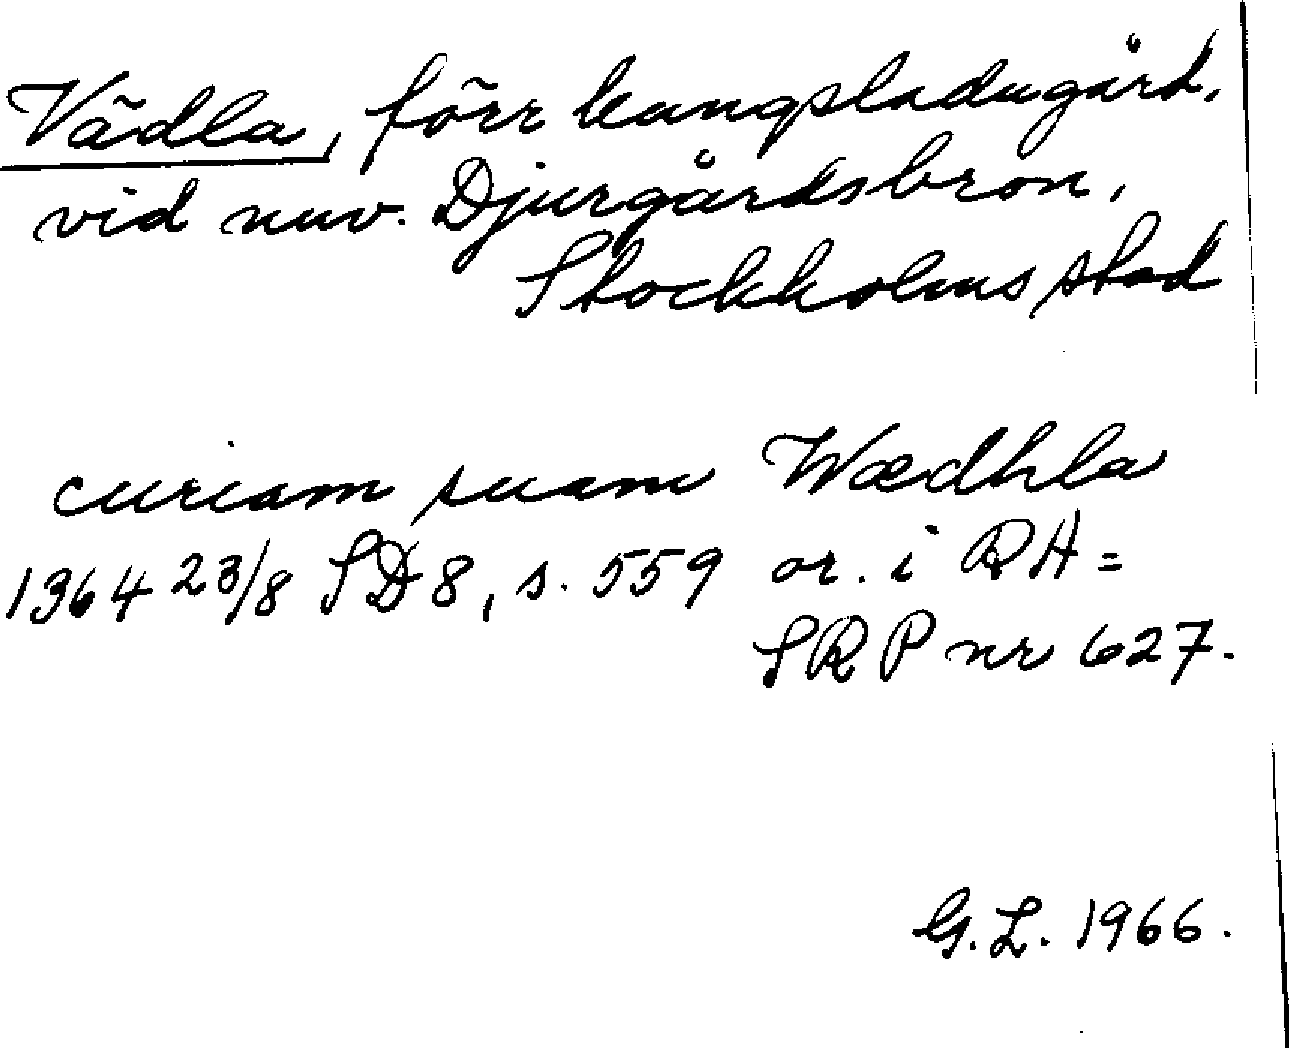 Vädla, förr kungsladugård,
vid nuv. Djurgårdsbron,
Stockholms stad
curiam suam Wædhla
1364 23/8 SD 8, s. 559 or. i RA =
SRP nr 627.
G. L. 1966.